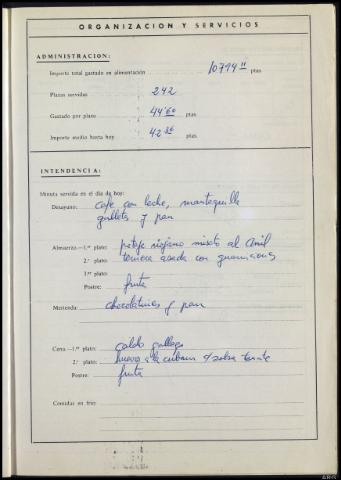 ORGANIZACION Y SERVICIOS
ADMINISTRACION:
Importe total gastado en alimentación 10794 ptas.
Plazas servidas 242
Gastado por plaza 44'60 ptas.
Importe medio hasta hoy 42'86 ptas.
INTENDENCIA:
Minuta servida en el día de hoy:
Desayuno: café con leche, mantequilla
galletas y pan
Almuerzo.—1.er plato: potaje riojano mixto al
2.º plato: ternera asada con guarniciones
3.er plato:
Postre: fruta
Merienda: chocolatinas y pan
Cena.—1.er plato: caldo gallego
2.º plato: huevos a la cubana c/salsa tomate
Postre: fruta
Comidas en frío: